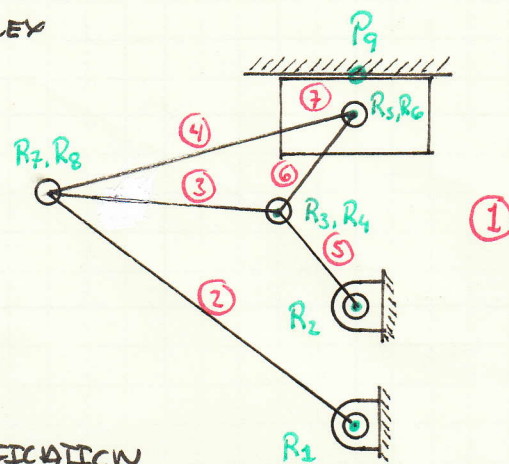 LEX
P9
7
R5,R6
4
R7,R8
6
3
R3,R4
1
5
2
R2
R1
FICATION